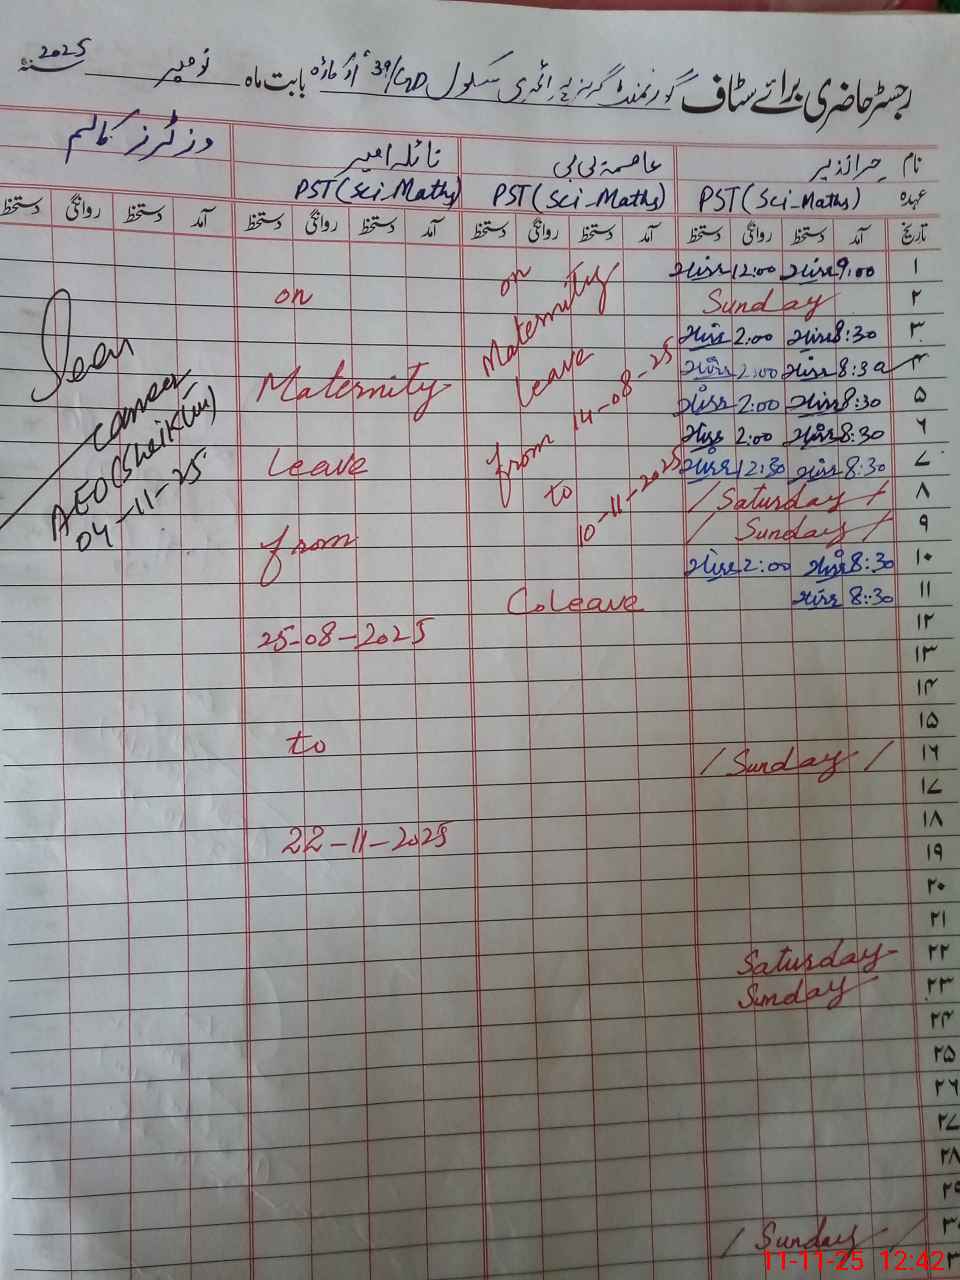 رجسٹر حاضری برائے سٹاف گورنمنٹ گرلز پرائمری سکول 39/GD بابت ماہ نومبر سنہ 2025
نام حرا نذیر عاصمہ بی بی نائلہ امیر وزیٹرز کالم
عہدہ PST (Sci-Maths) PST (Sci-Maths) PST (Sci-Maths)
تاریخ آمد دستخط روانگی دستخط آمد دستخط روانگی دستخط آمد دستخط روانگی دستخط آمد دستخط روانگی دستخط
۱ 9:00 12:00
۲ Sunday
۳ 8:30 2:00
۴ 8:30 2:00
۵ 8:30 2:00
۶ 8:30 2:00
۷ 8:30 12:30
۸ Saturday
۹ Sunday
۱۰ 8:30 2:00
۱۱ 8:30 C leave
۱۲
۱۳
۱۴
۱۵
۱۶ Sunday
۱۷
۱۸
۱۹
۲۰
۲۱
۲۲ Saturday
۲۳ Sunday
۲۴
۲۵
۲۶
۲۷
۲۸
۲۹
۳۰ Sunday
on
Maternity
leave
from 14-08-25
to
10-11-2025
on
Maternity
Leave
from
25-08-2025
to
22-11-2025
Seen
AEO (Sheikhu)
04-11-25
11-11-25 12:42